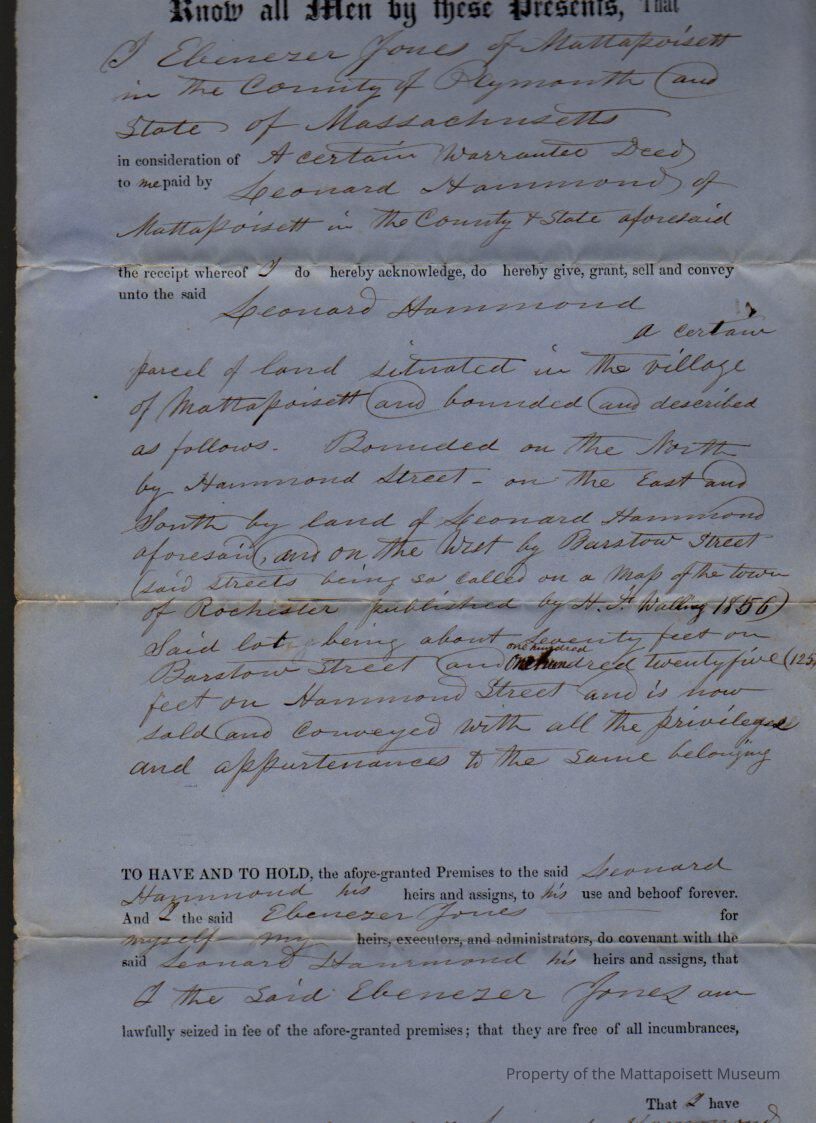 Know all Men by these Presents, That
I Ebenezer Jones of Mattapoisett
in the County of Plymouth and
State of Massachusetts
in consideration of A certain Warrantee Deed
to me paid by Leonard Hammond of
Mattapoisett in the County & State aforesaid
the receipt whereof I do hereby acknowledge, do hereby give, grant, sell and convey
unto the said Leonard Hammond
a certain
parcel of land situated in the village
of Mattapoisett and bounded and described
as follows. Bounded on the North
by Hammond Street - on the East and
South by land of Leonard Hammond
aforesaid, and on the West by Barstow Street
(said streets being so called on a Map of the town
of Rochester published by H. F. Walling 1856)
Said lot being about seventy feet on
one hundred
Barstow Street and one hundred twenty five (125)
feet on Hammond Street and is now
sold and conveyed with all the privileges
and appurtenances to the same belonging
TO HAVE AND TO HOLD, the afore-granted Premises to the said Leonard
Hammond his heirs and assigns, to his use and behoof forever.
And I the said Ebenezer Jones for
myself my heirs, executors, and administrators, do covenant with the
said Leonard Hammond his heirs and assigns, that
I the said Ebenezer Jones am
lawfully seized in fee of the afore-granted premises; that they are free of all incumbrances,
Property of the Mattapoisett Museum
That I have